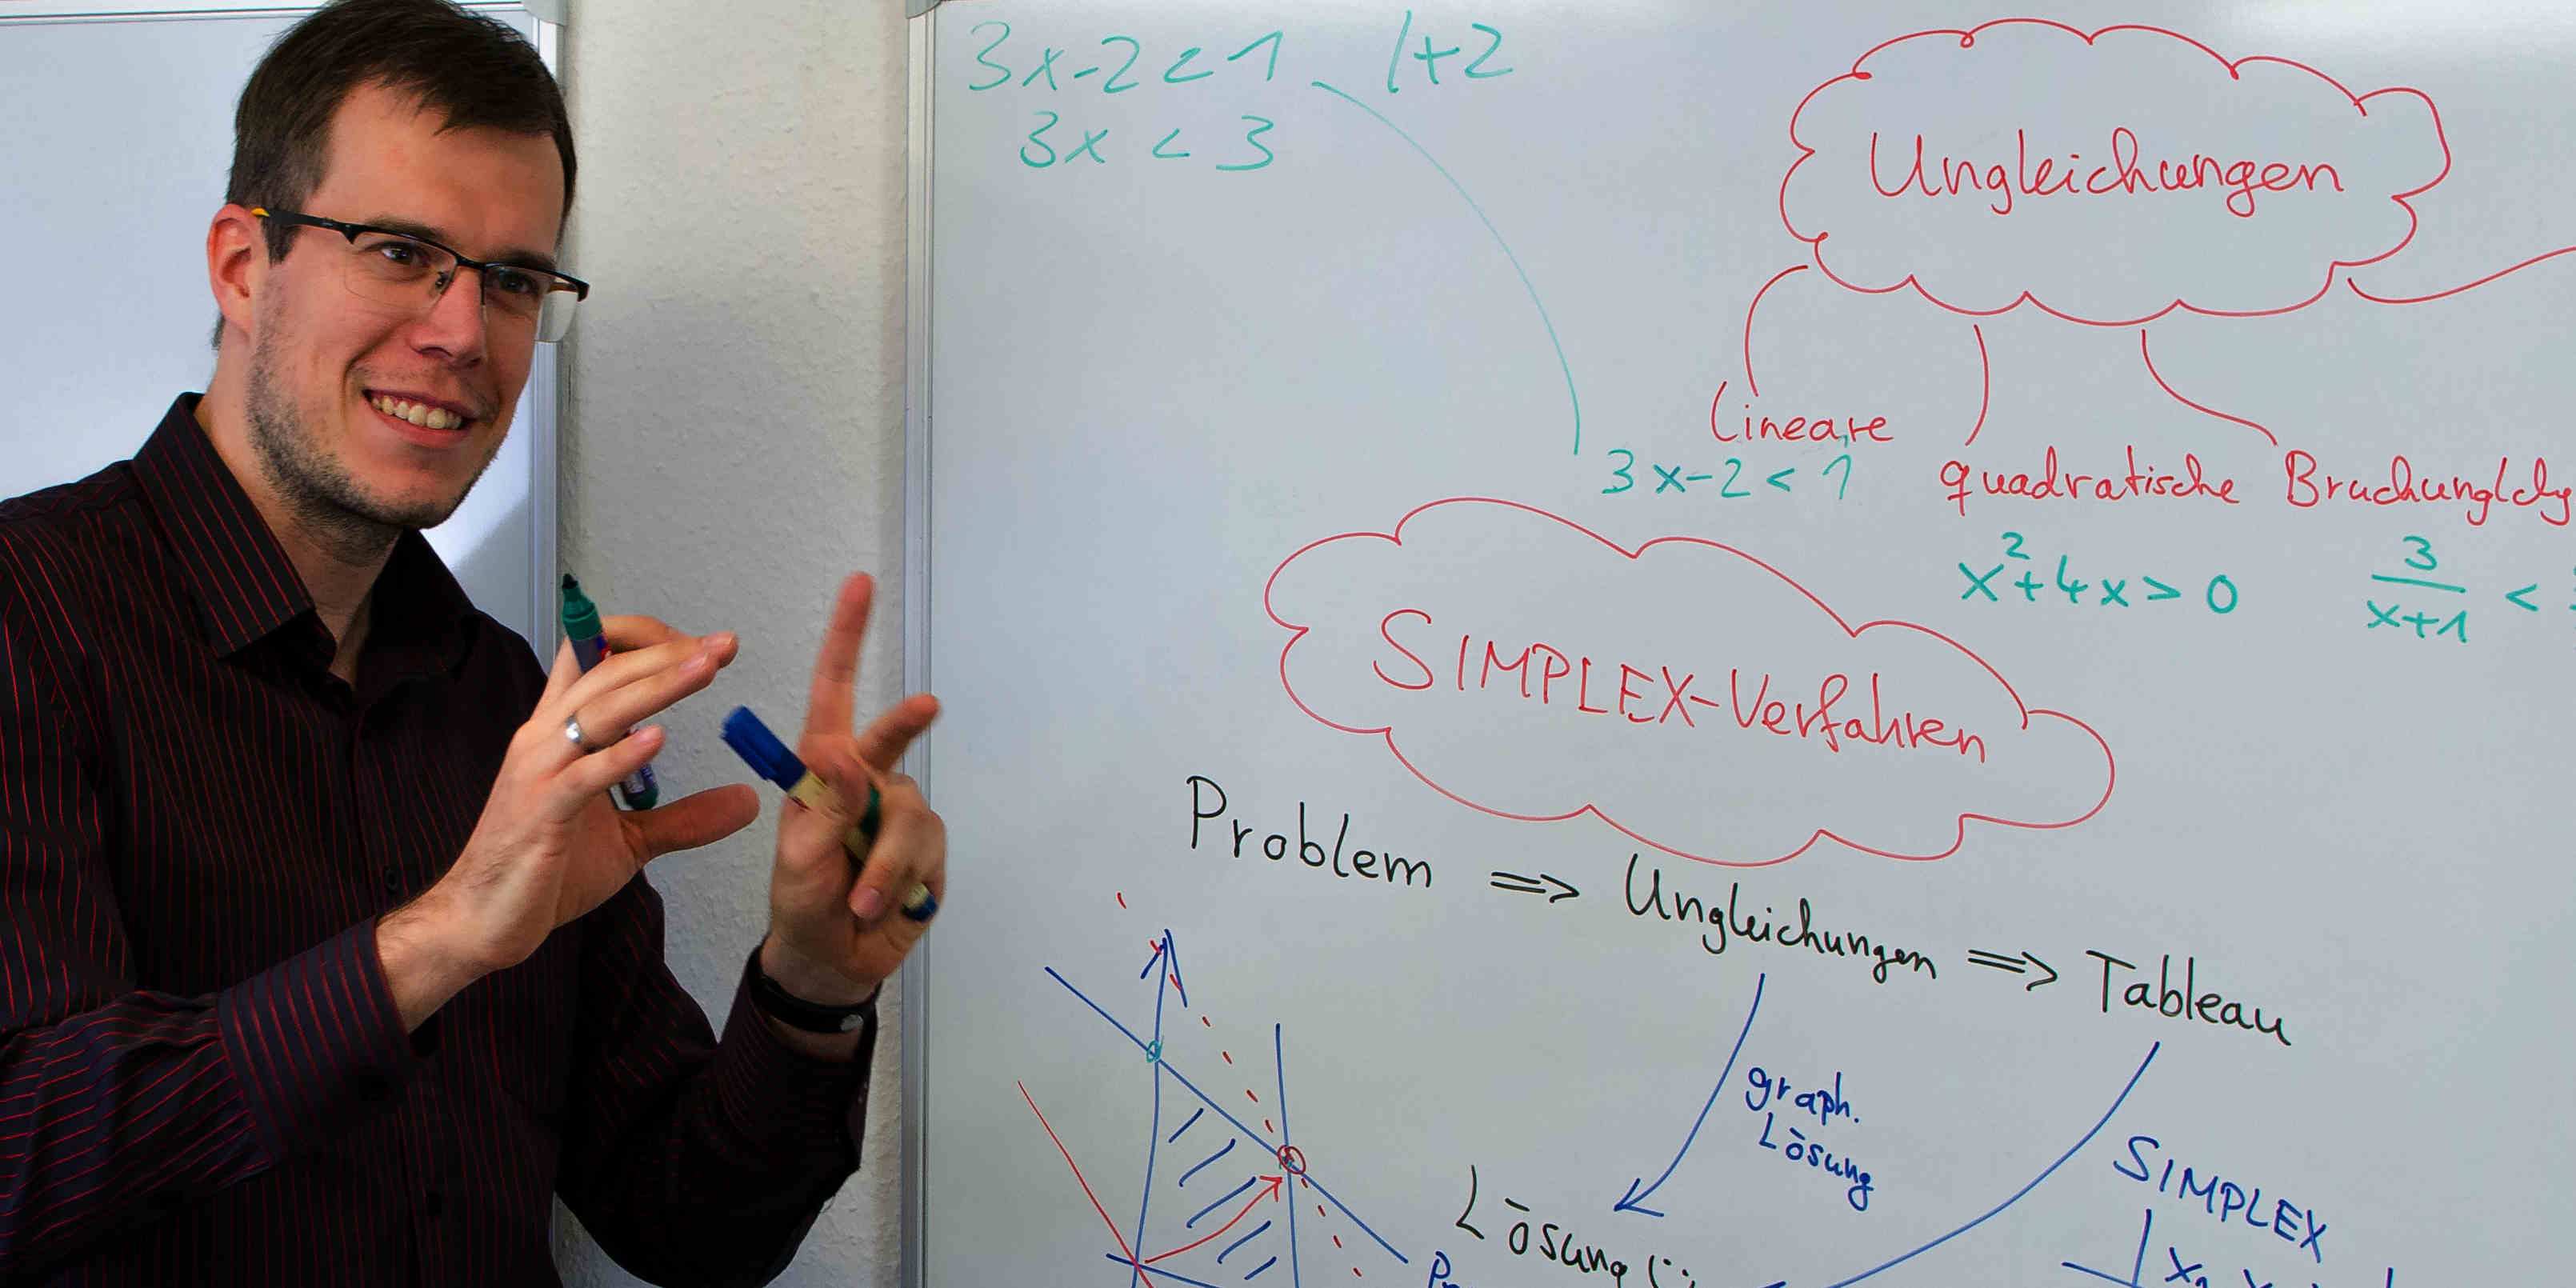 3x-2<1 |+2
3x < 3
Ungleichungen
Lineare
3x-2<1
quadratische
x²+4x>0
3/(x+1) <
SIMPLEX-Verfahren
Problem => Ungleichungen => Tableau
graph.
Lösung
Lösung
SIMPLEX